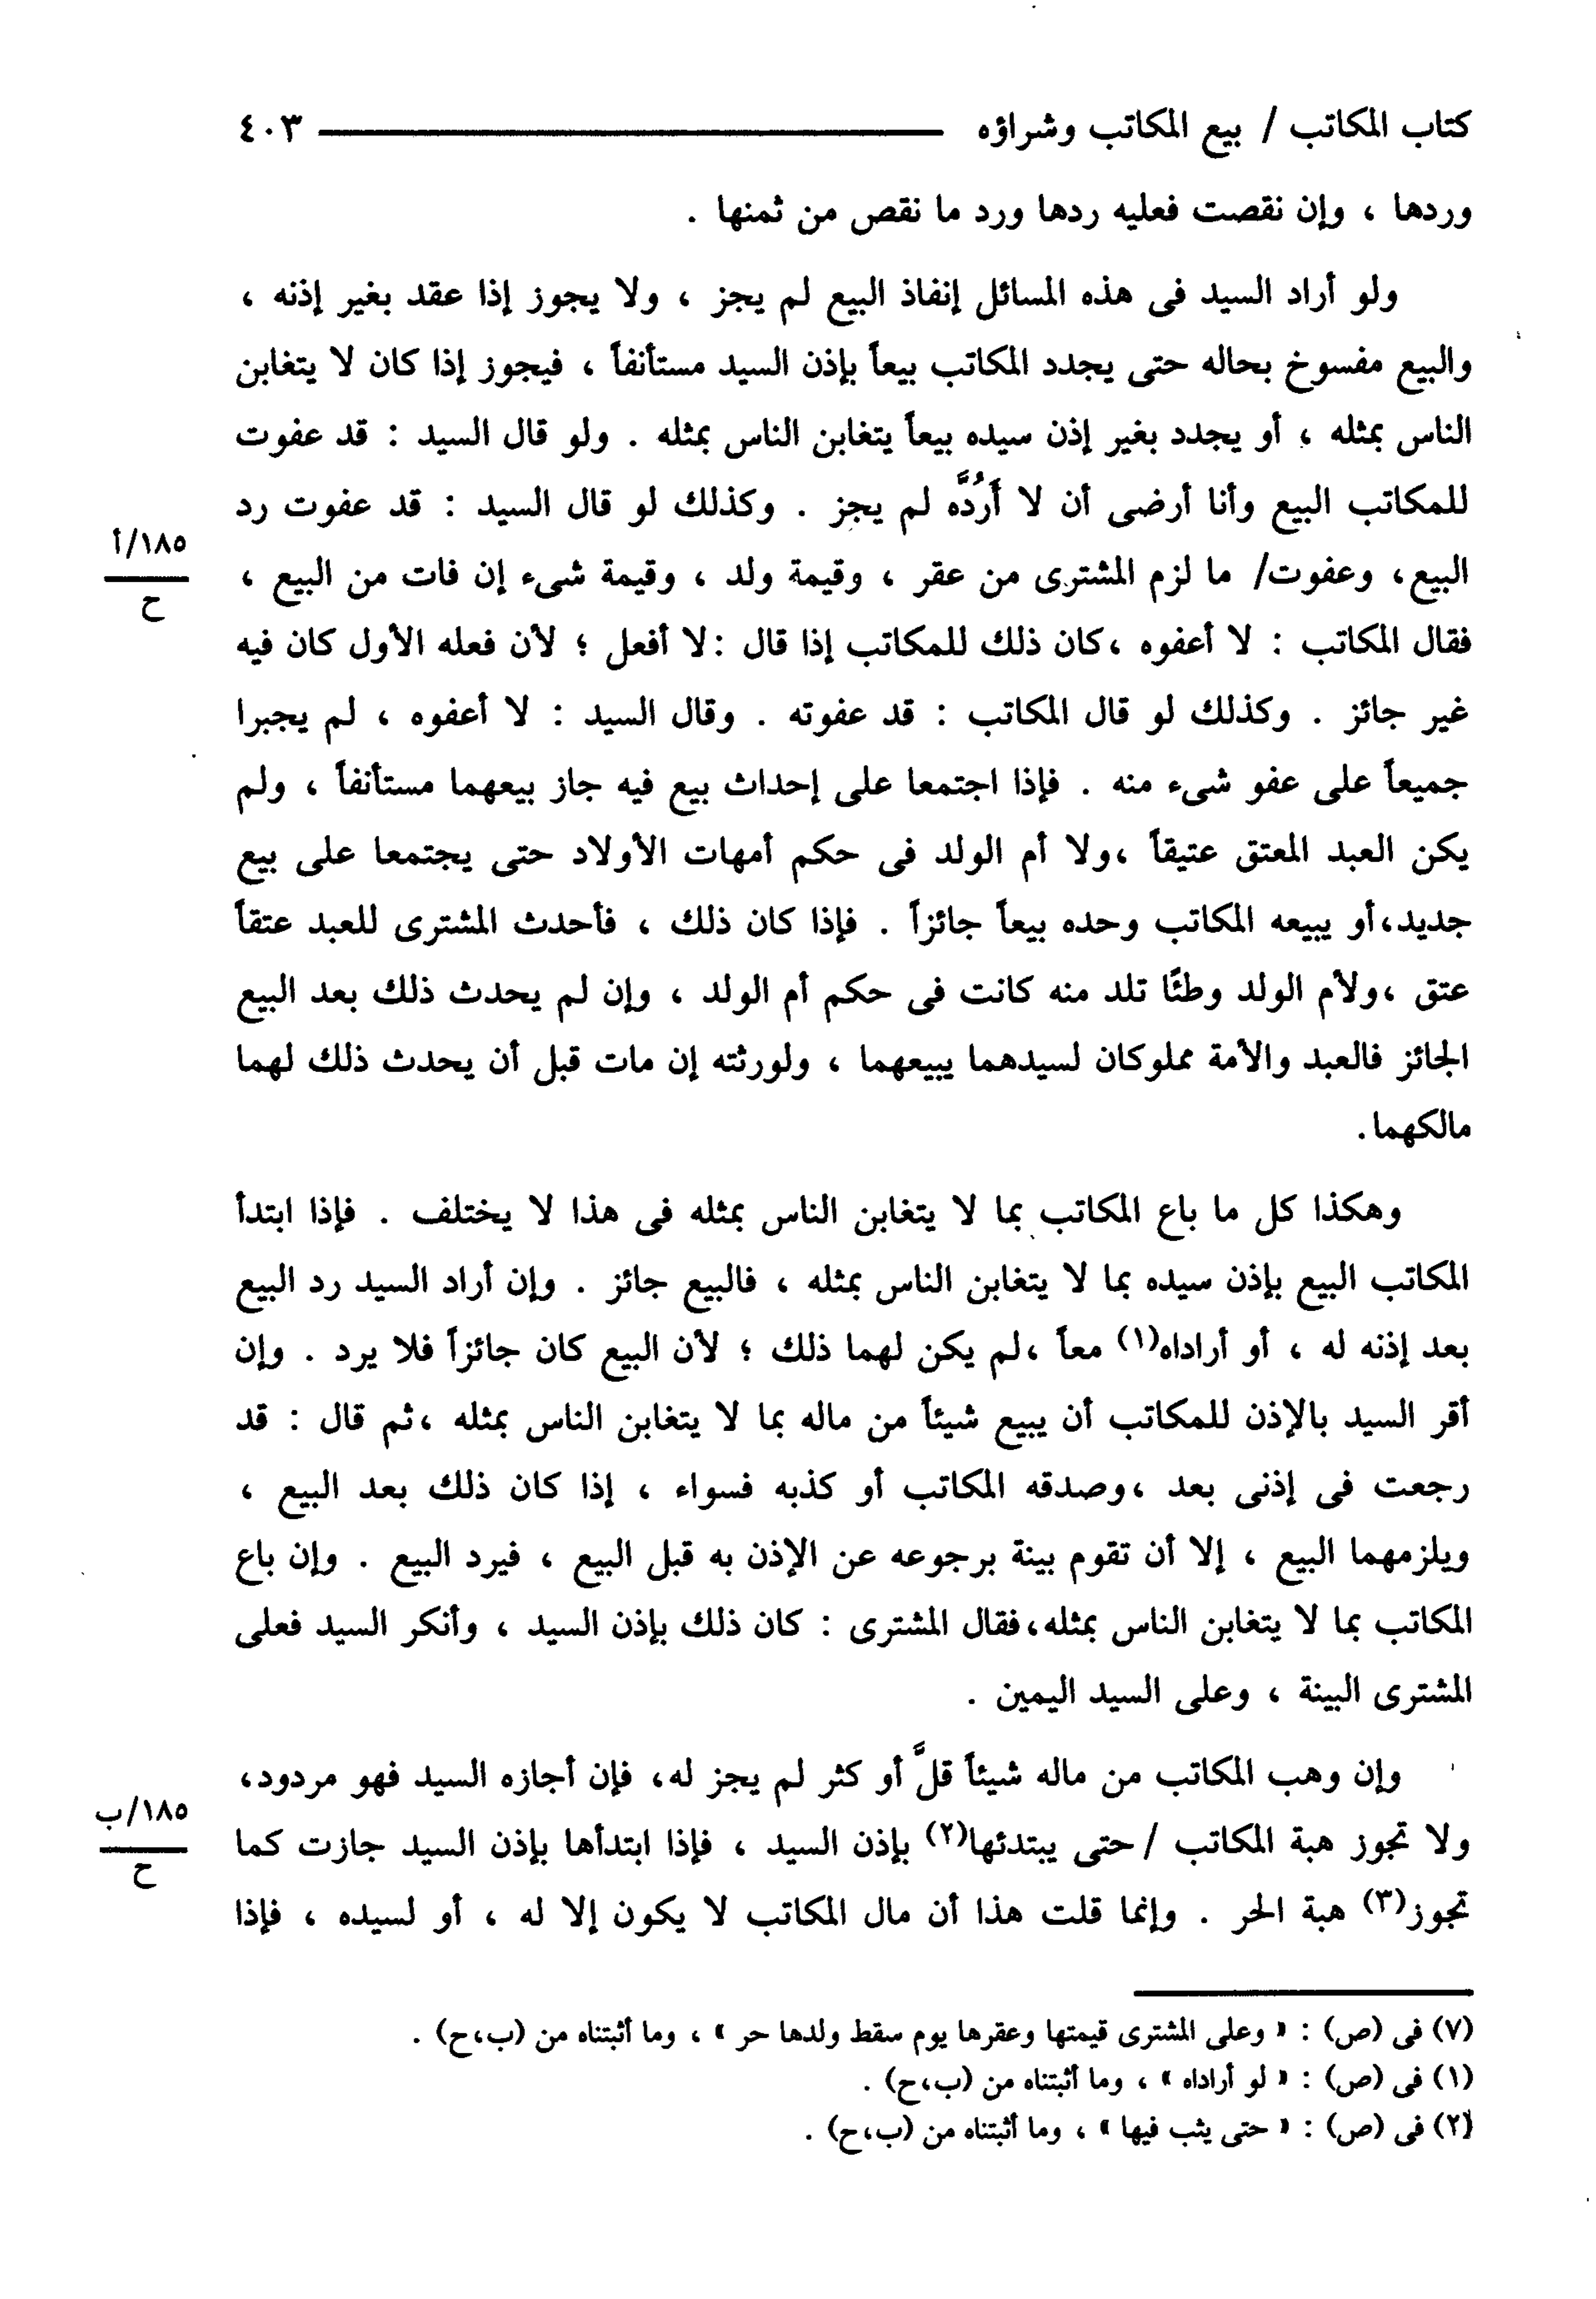 كتاب المكاتب / بيع المكاتب وشراؤه ــــــــــــــــ ٤٠٣
وردها ، وإن نقصت فعليه ردها ورد ما نقص من ثمنها .
ولو أراد السيد فى هذه المسائل إنفاذ البيع لم يجز ، ولا يجوز إذا عقد بغير إذنه ،
والبيع مفسوخ بحاله حتى يجدد المكاتب بيعاً بإذن السيد مستأنفاً ، فيجوز إذا كان لا يتغابن
الناس بمثله ، أو يجدد بغير إذن سيده بيعاً يتغابن الناس بمثله . ولو قال السيد : قد عفوت
للمكاتب البيع وأنا أرضى أن لا أَرُدَّه لم يجز . وكذلك لو قال السيد : قد عفوت رد
البيع، وعفوت/ ما لزم المشترى من عقر ، وقيمة ولد ، وقيمة شىء إن فات من البيع ،
١٨٥/أ
ح
فقال المكاتب : لا أعفوه ،كان ذلك للمكاتب إذا قال :لا أفعل ؛ لأن فعله الأول كان فيه
غير جائز . وكذلك لو قال المكاتب : قد عفوته . وقال السيد : لا أعفوه ، لم يجبرا
جميعاً على عفو شىء منه . فإذا اجتمعا على إحداث بيع فيه جاز بيعهما مستأنفاً ، ولم
يكن العبد المعتق عتيقاً ،ولا أم الولد فى حكم أمهات الأولاد حتى يجتمعا على بيع
جديد،أو يبيعه المكاتب وحده بيعاً جائزاً . فإذا كان ذلك ، فأحدث المشترى للعبد عتقاً
عتق ،ولأم الولد وطئًا تلد منه كانت فى حكم أم الولد ، وإن لم يحدث ذلك بعد البيع
الجائز فالعبد والأمة مملوكان لسيدهما يبيعهما ، ولورثته إن مات قبل أن يحدث ذلك لهما
مالكهما.
وهكذا كل ما باع المكاتب بما لا يتغابن الناس بمثله فى هذا لا يختلف . فإذا ابتدأ
المكاتب البيع بإذن سيده بما لا يتغابن الناس بمثله ، فالبيع جائز . وإن أراد السيد رد البيع
بعد إذنه له ، أو أراداه(١) معاً ،لم يكن لهما ذلك ؛ لأن البيع كان جائزاً فلا يرد . وإن
أقر السيد بالإذن للمكاتب أن يبيع شيئاً من ماله بما لا يتغابن الناس بمثله ،ثم قال : قد
رجعت فى إذنى بعد ،وصدقه المكاتب أو كذبه فسواء ، إذا كان ذلك بعد البيع ،
ويلزمهما البيع ، إلا أن تقوم بينة برجوعه عن الإذن به قبل البيع ، فيرد البيع . وإن باع
المكاتب بما لا يتغابن الناس بمثله،فقال المشترى : كان ذلك بإذن السيد ، وأنكر السيد فعلى
المشترى البينة ، وعلى السيد اليمين .
وإن وهب المكاتب من ماله شيئاً قلَّ أو كثر لم يجز له، فإن أجازه السيد فهو مردود،
ولا تجوز هبة المكاتب / حتى يبتدئها(٢) بإذن السيد ، فإذا ابتدأها بإذن السيد جازت كما
١٨٥/ب
ح
تجوز(٣) هبة الحر . وإنما قلت هذا أن مال المكاتب لا يكون إلا له ، أو لسيده ، فإذا
(٧) فى (ص) : « وعلى المشترى قيمتها وعقرها يوم سقط ولدها حر » ، وما أثبتناه من (ب،ح) .
(١) فى (ص) : « لو أراداه » ، وما أثبتناه من (ب،ح) .
(٢) فى (ص) : « حتى يثب فيها » ، وما أثبتناه من (ب،ح) .